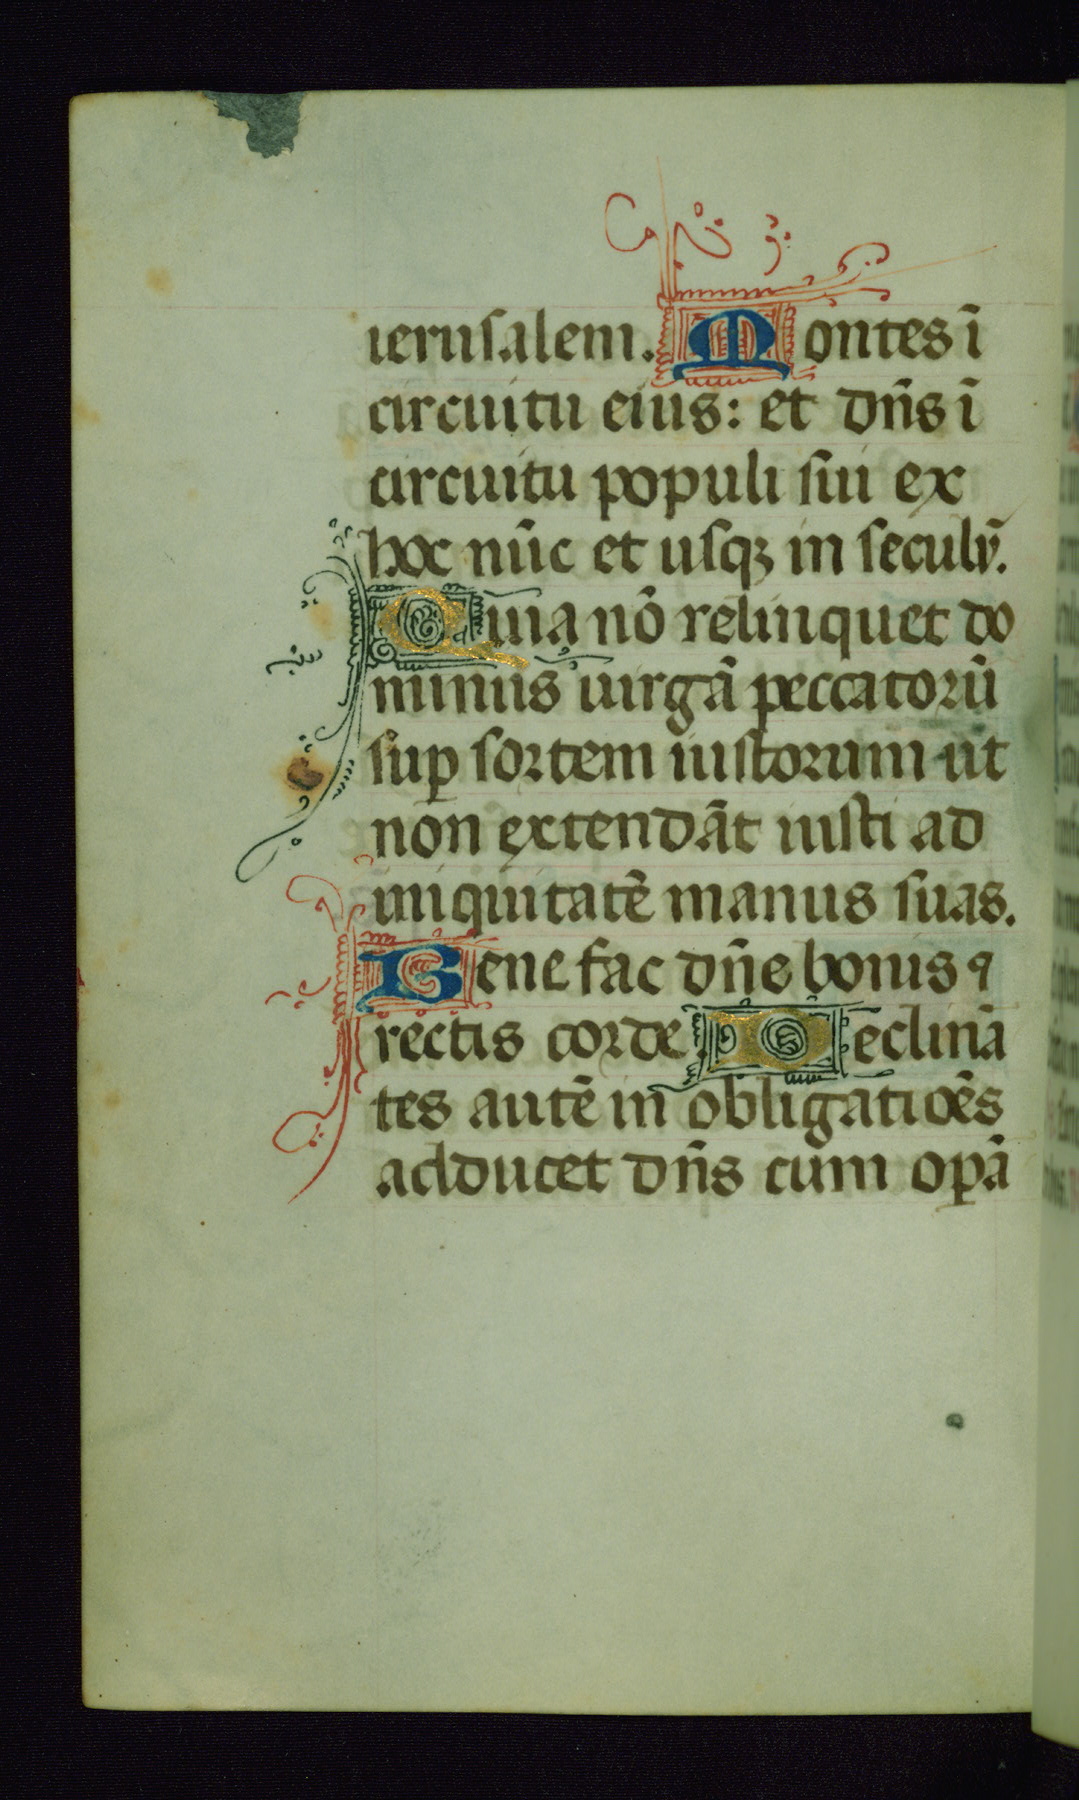 ierusalem. Montes ī
circuitu eius: et dn̄s ī
circuitu populi sui ex
hoc nūc et usqꝫ in seculū.
Quia nō relinquet do
minus uirgā peccatorū
suꝑ sortem iustorum ut
non extendāt iusti ad
iniquitatē manus suas.
Bene fac dn̄e bonis ꝯ
rectis corde. Declinā
tes autē in obligatiōēs
adducet dn̄s cum oꝑā